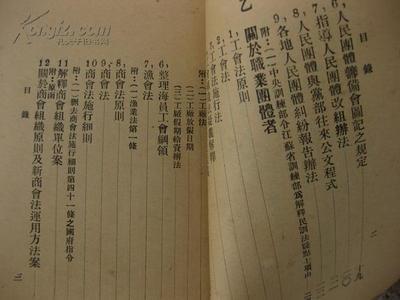 目錄
二
6, 人民團體籌備會圖記之規定
7, 指導人民團體改組辦法
8, 人民團體與黨部往來公文程式
9, 各地人民團體糾紛報告辦法
附:(一)中央訓練部令江蘇省訓練部為解釋民訓法疑點
乙 關於職業團體者
1, 工會法原則
工會法
工會法施行法
解釋
附:(一)工廠法
(二)工廠放假日期
(三)工廠假期給資辦法
6, 整理海員工會綱領
7, 漁會法
附:(一)漁業法第一條
8, 商會法原則
9, 商會法
10 商會法施行細則
附:(一)刪去商會法施行細則第四十一條之國府指令
11 解釋商會組織單位案
12 關於商會組織原則及新商會法運用方法案
目錄
三